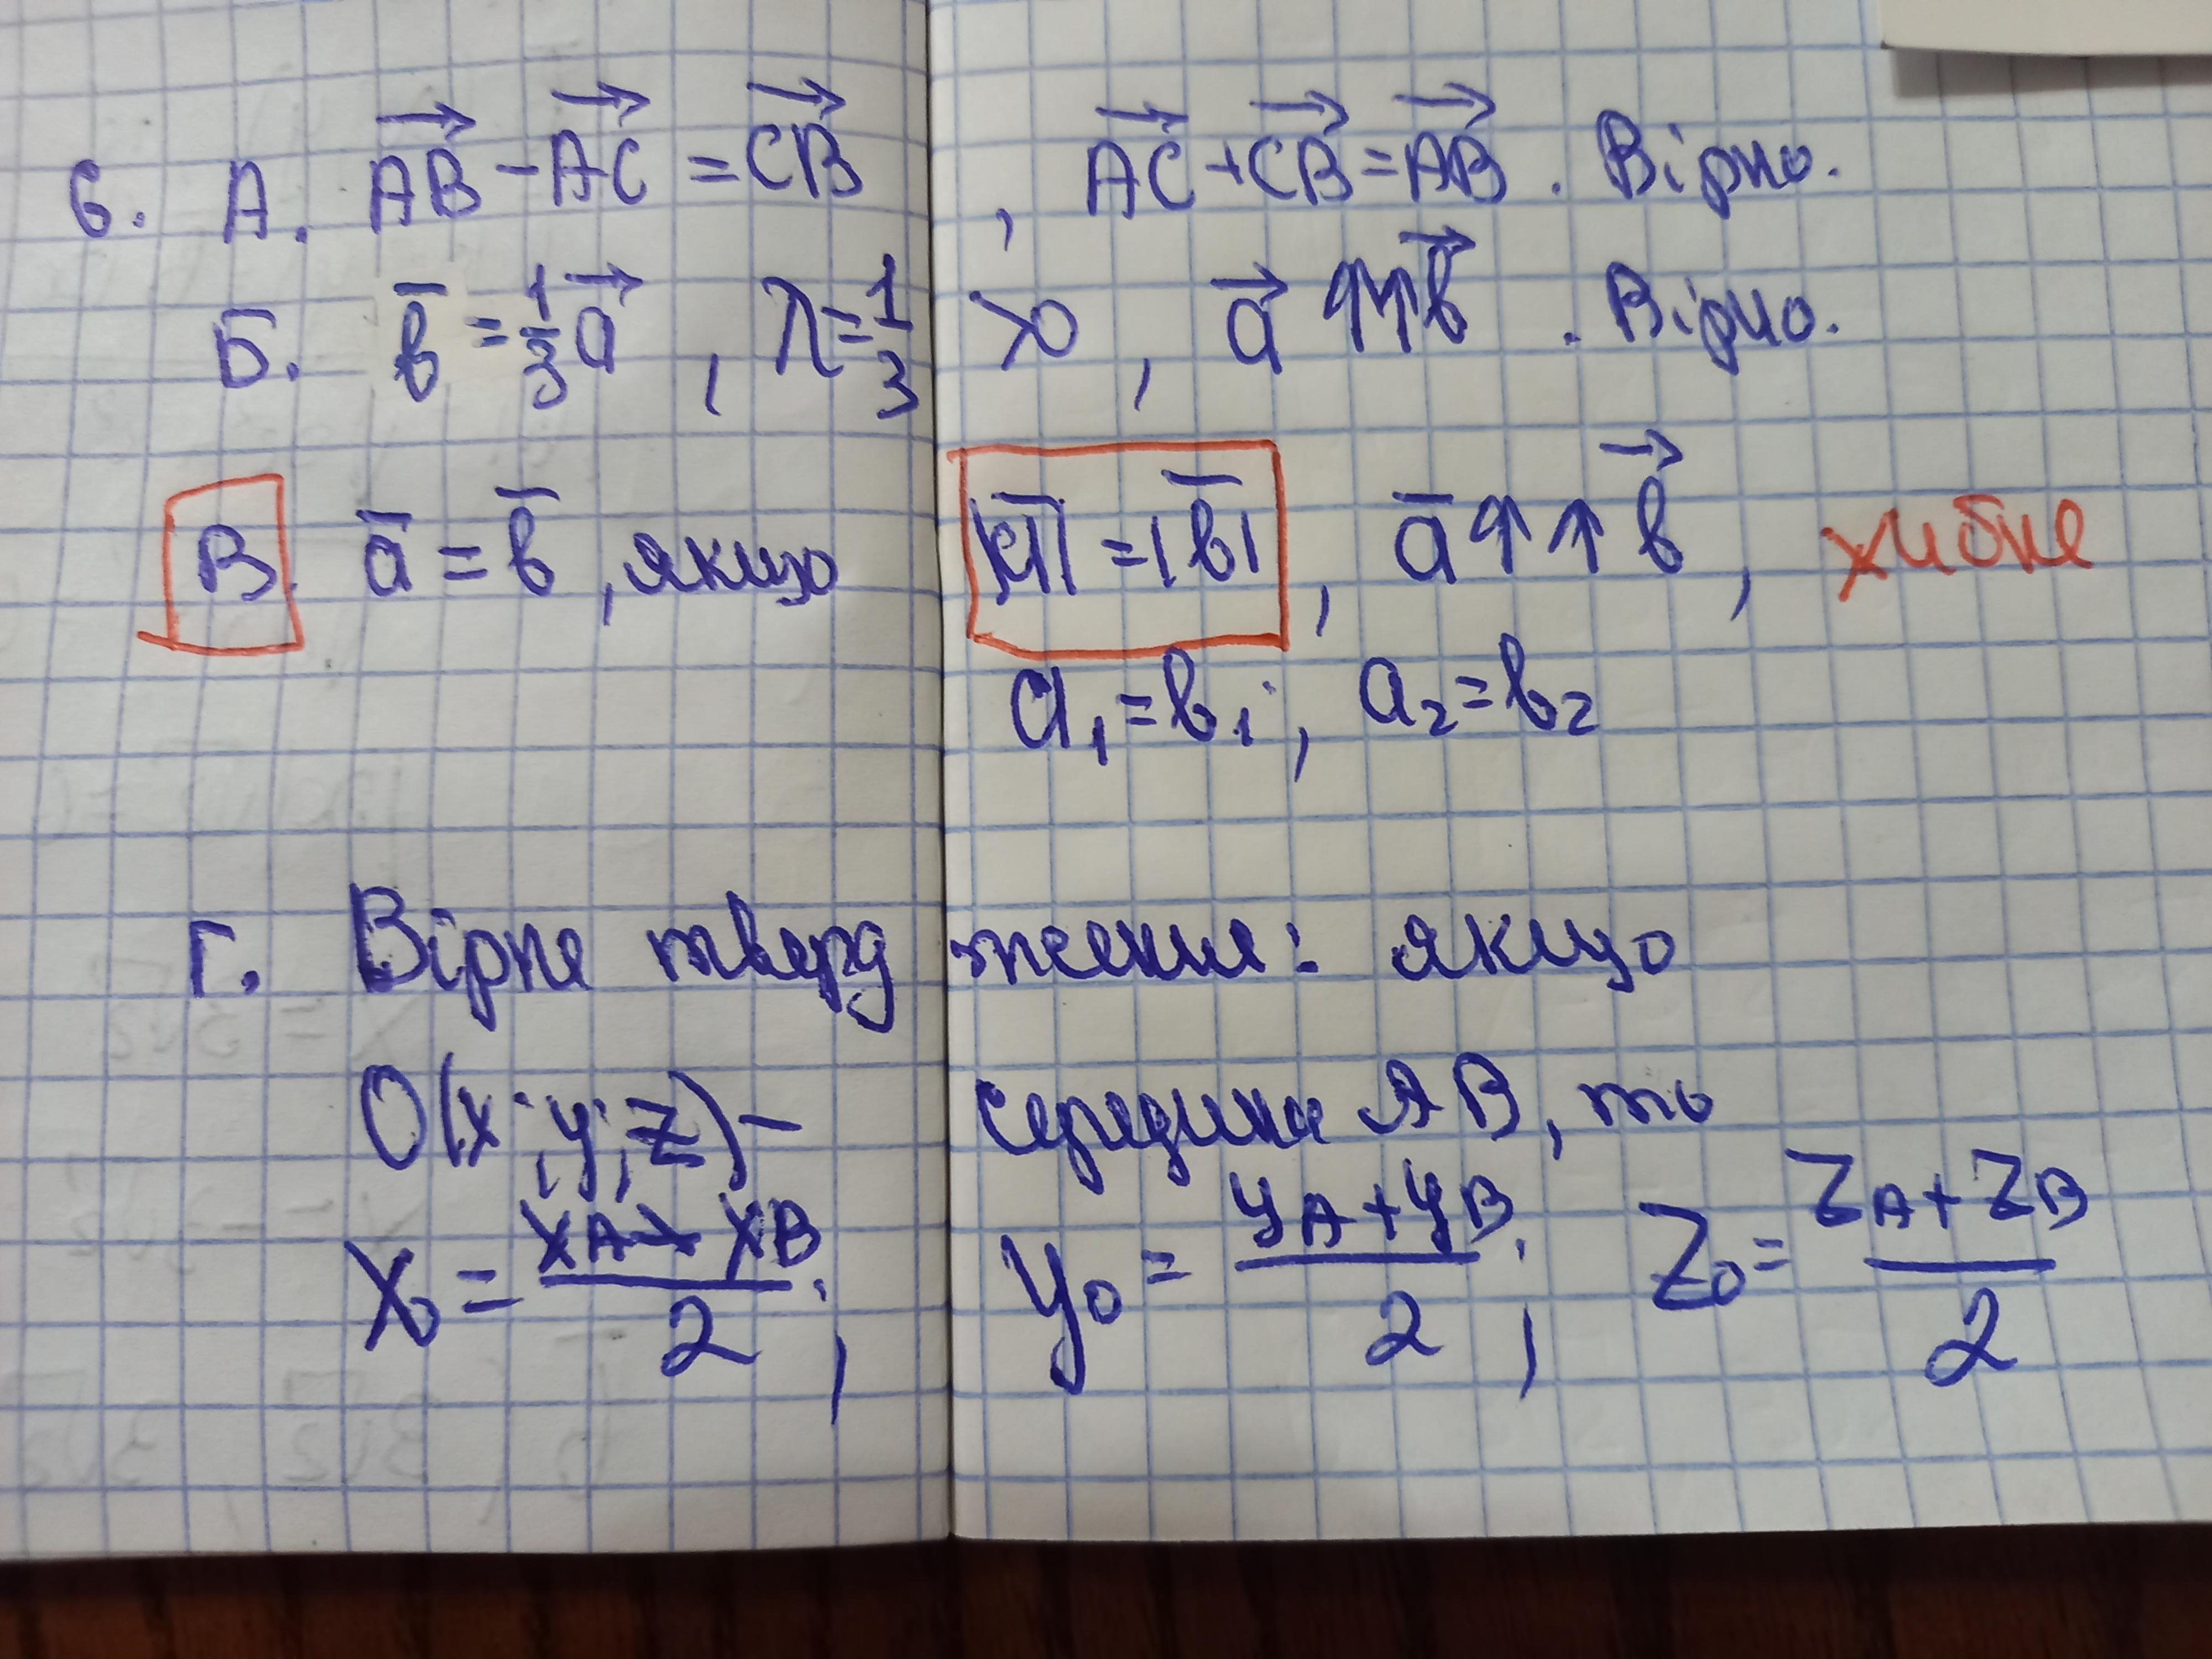 6. А. AB - AC = CB , AC + CB = AB . Вірно.
Б. b = 1/3 a , λ = 1/3 >0 , a ↑↑ b . Вірно.
В. a = b , якщо |a| = |b| , a ↑↑ b , хибне
a₁ = b₁ , a₂ = b₂
Г. Вірне твердження: якщо
O(x;y;z) - середина AB, то
x₀ = (xA + xB)/2 ; y₀ = (yA + yB)/2 ; z₀ = (zA + zB)/2